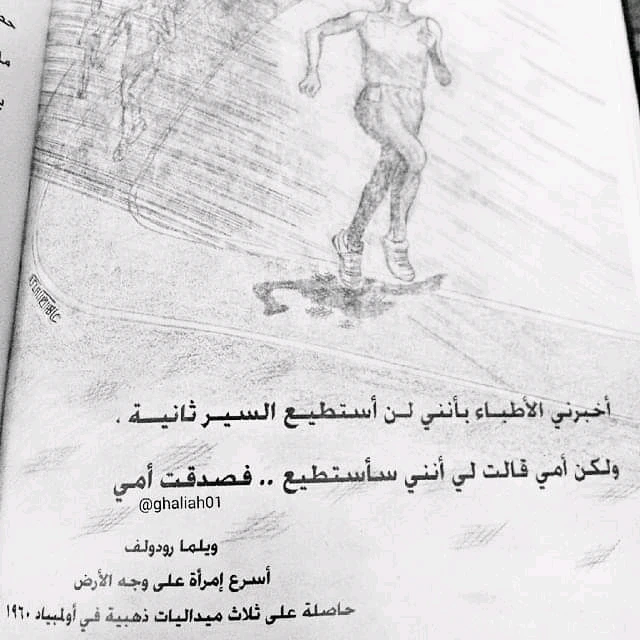 أخبرني الأطباء بأنني لن أستطيع السير ثانية .
ولكن أمي قالت لي أنني سأستطيع .. فصدقت أمي
@ghaliah01
ويلما رودولف
أسرع إمرأة على وجه الأرض
حاصلة على ثلاث ميداليات ذهبية في أولمبياد ١٩٦٠